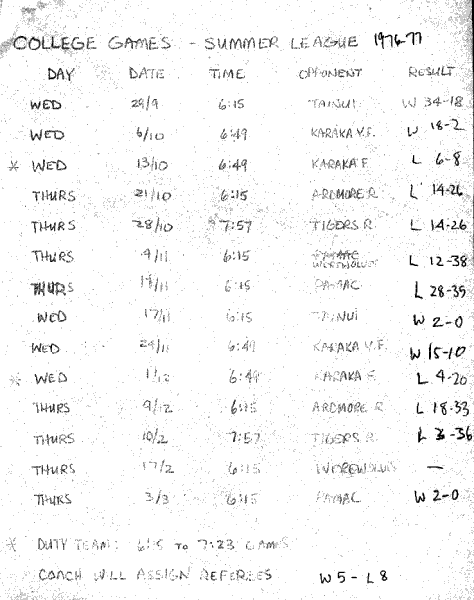 COLLEGE GAMES - SUMMER LEAGUE 1976-77
DAY DATE TIME OPPONENT RESULT
WED 29/9 6:15 TAINUI W 34-18
WED 6/10 6:49 KARAKA Y.F. W 18-2
* WED 13/10 6:49 KARAKA F. L 6-8
THURS 21/10 6:15 ARDMORE R. L 14-26
THURS 28/10 7:57 TIGERS R. L 14-26
THURS 4/11 6:15 L 12-38
THURS 6:15 PAMAC L 28-35
WED 17/11 6:15 TAINUI W 2-0
WED 24/11 6:49 KARAKA Y.F. W 15-10
* WED 1/12 6:49 KARAKA F. L 4-20
THURS 9/12 6:15 ARDMORE R L 18-33
THURS 10/2 7:57 TIGERS R. L 36
THURS 17/2 6:15 —
THURS 3/3 6:15 PAMAC W 2-0
* DUTY TEAM: 6:15 TO 7:23 GAMES
COACH WILL ASSIGN REFEREES W5 - L8